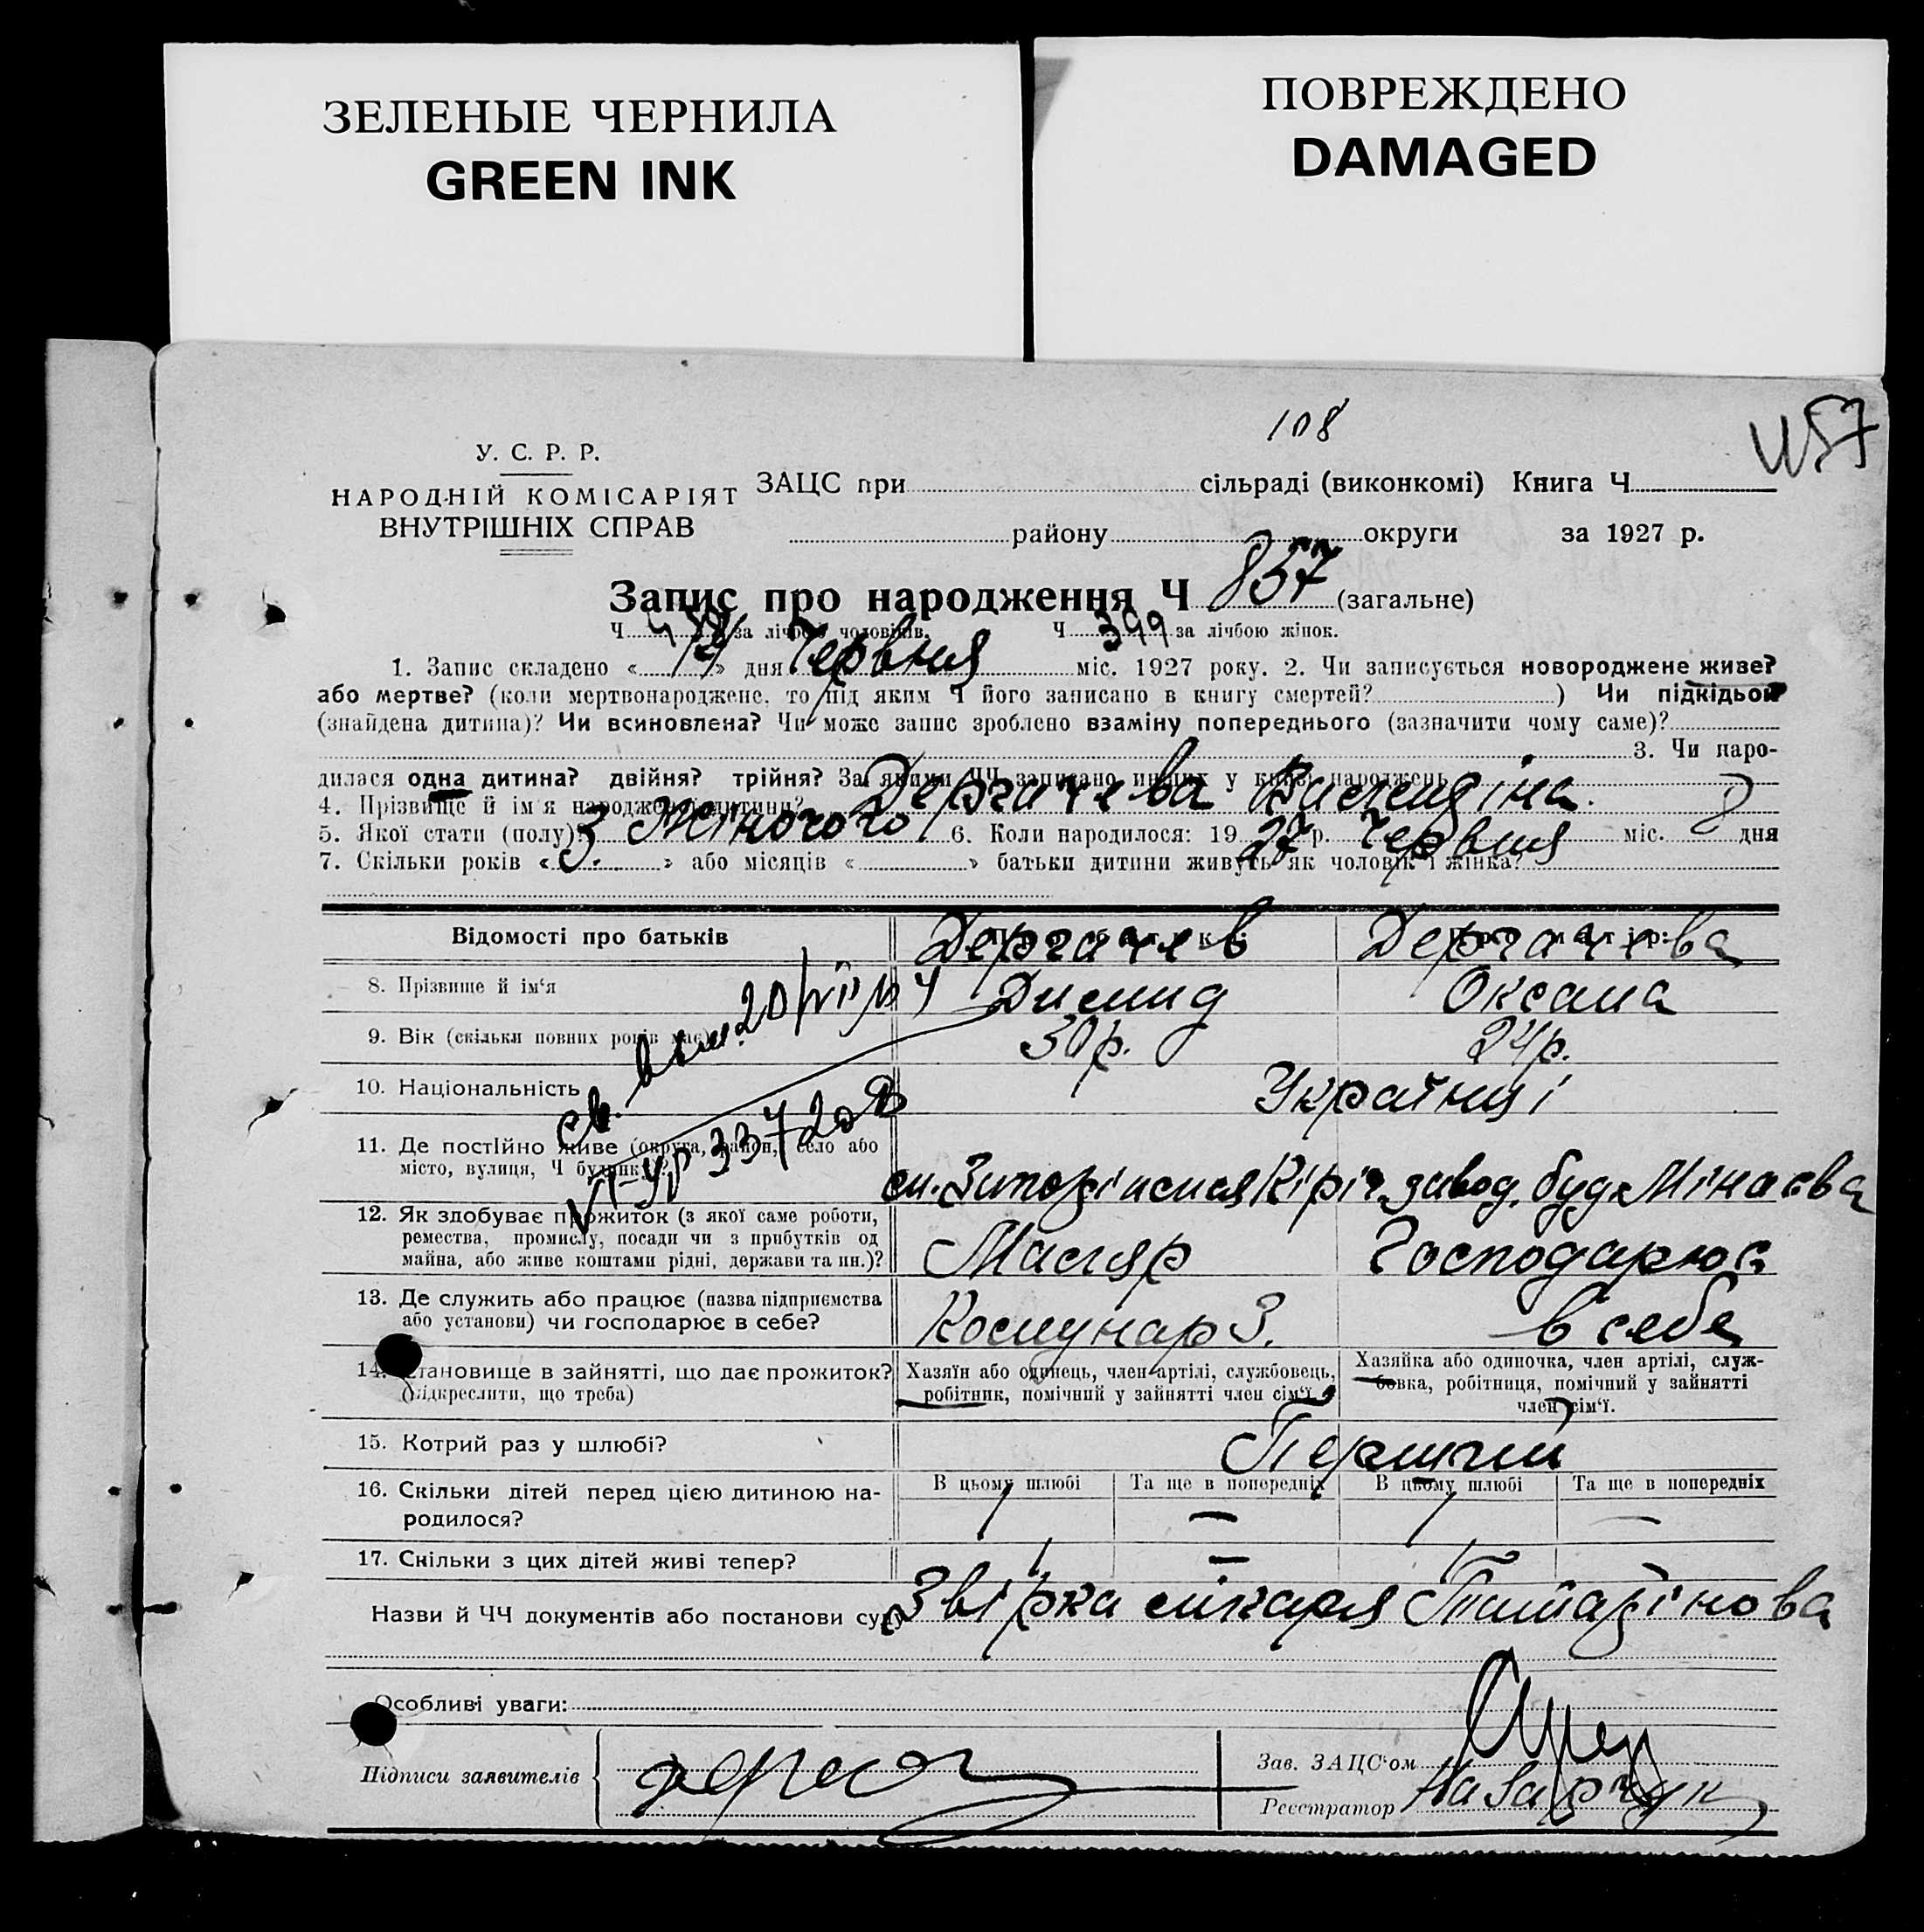 ЗЕЛЕНЫЕ ЧЕРНИЛА
GREEN INK
ПОВРЕЖДЕНО
DAMAGED
108
У. С. Р. Р.
НАРОДНІЙ КОМІСАРІЯТ
ВНУТРІШНІХ СПРАВ
ЗАЦС при сільраді (виконкомі) Книга Ч
району округи за 1927 р.
Запис про народження Ч 857 (загальне)
Ч за лічбою чоловіків. Ч 399 за лічбою жінок.
1. Запис складено « 14 » дня Червня міс. 1927 року. 2. Чи записується новороджене живе?
або мертве? (коли мертвонароджене, то під яким Ч його записано в книгу смертей? ) Чи підкідьок
(знайдена дитина)? Чи всиновлена? Чи може запис зроблено взаміну попереднього (зазначити чому саме)?
3. Чи наро-
дилася одна дитина? двійня? трійня? За якими ЧЧ записано инших у книзі народжень
4. Прізвище й ім'я народженої дитини? Дергачева
5. Якої стати (полу)? З Жіночого 6. Коли народилося: 19 27 р. Червня міс. 8 дня
7. Скільки років « 3. » або місяців « » батьки дитини живуть як чоловік і жінка?
Відомості про батьків
Дергачев Дергачева
8. Прізвище й ім'я Оксана
9. Вік (скільки повних років має) 30 р. 24 р.
10. Національність Українці
11. Де постійно живе (округа, район, село або
місто, вулиця, Ч будинку)?
завод. буд. Мінаєва
12. Як здобуває прожиток (з якої саме роботи,
ремества, промислу, посади чи з прибутків од
майна, або живе коштами рідні, держави та ин.)?
Маляр Господарює
13. Де служить або працює (назва підприємства
або установи) чи господарює в себе?
Комунар З. в себе
14. Становище в зайнятті, що дає прожиток?
(підкреслити, що треба)
Хазяїн або одинець, член артілі, службовець,
робітник, помічний у зайнятті член сім'ї
Хазяйка або одиночка, член артілі, служ-
бовка, робітниця, помічний у зайнятті
член сім'ї.
15. Котрий раз у шлюбі? Перший
16. Скільки дітей перед цією дитиною на-
родилося?
В цьому шлюбі Та ще в попередніх В цьому шлюбі Та ще в попередніх
1 — 1 —
17. Скільки з цих дітей живі тепер? 1 — 1
Назви й ЧЧ документів або постанови суду Звірка лікаря
Особливі уваги:
Підписи заявителів
Зав. ЗАЦС'ом
Реєстратор Назарчук